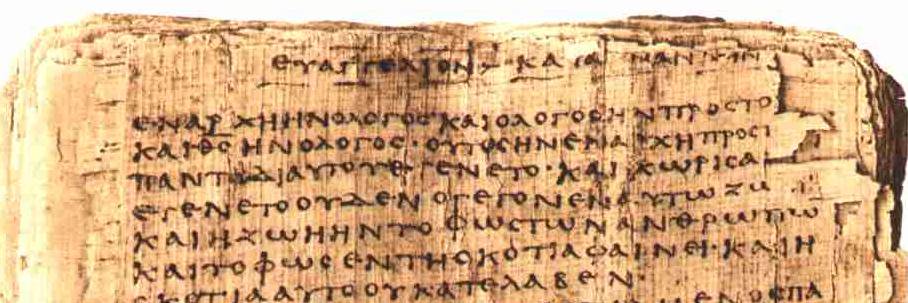 ΕΥΑΓΓΕΛΙΟΝ ΚΑΤΑ
ΕΝΑΡΧΗΗΝΟΛΟΓΟϹΚΑΙΟΛΟΓΟϹΗΝΠΡΟϹΤΟ
ΚΑΙΘ̅Ϲ̅ΗΝΟΛΟΓΟϹ·ΟΥΤΟϹΗΝΕΝΑΡΧΗΠΡΟϹ
ΠΑΝΤΑΔΙΑΥΤΟΥΕΓΕΝΕΤΟ·ΚΑΙΧΩΡΙϹΑ
ΕΓΕΝΕΤΟΟΥΔΕΝΟΓΕΓΟΝΕΝΑΥΤΩΖΩ
ΚΑΙΗΖΩΗΗΝΤΟΦΩϹΤΩΝΑΝΘΡΩΠΩ
ΚΑΙΤΟΦΩϹΕΝΤΗϹΚΟΤΙΑΦΑΙΝΕΙ·ΚΑΙΗ
ϹΚΟΤΙΑΑΥΤΟΟΥΚΑΤΕΛΑΒΕΝ·